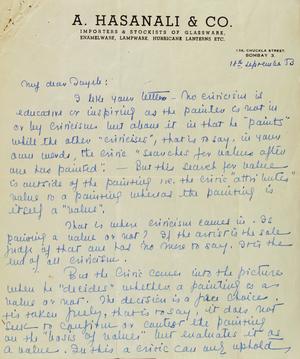 A. HASANALI & CO.
IMPORTERS & STOCKISTS OF GLASSWARE,
ENAMELWARE, LAMPWARE, HURRICANE LANTERNS ETC.
136, CHUCKLA STREET,
BOMBAY 3.
18th September 53
My dear
I like your letter - No criticism is
educative or inspiring as the painter is not in
or by criticism but above it in that he "paints"
while the other "criticises", that is to say, in your
own words, the critic "searches for values after
one has painted". - But the search for value
is outside of the painting i.e. the critic "attributes"
value to a painting whereas the painting is
itself a "value".
That is where criticism comes in. Is
painting a value or not? If the artist is the sole
judge of that one has no more to say. It is the
end of all criticism.
But the critic comes into the picture
when he "decides" whether a painting is a
value or not. The decision is a free choice.
It is taken freely, that is to say, it does not
seek to confirm or contest the painting
on the "basis of values" but evaluates it as
a value. In this a critic can only uphold